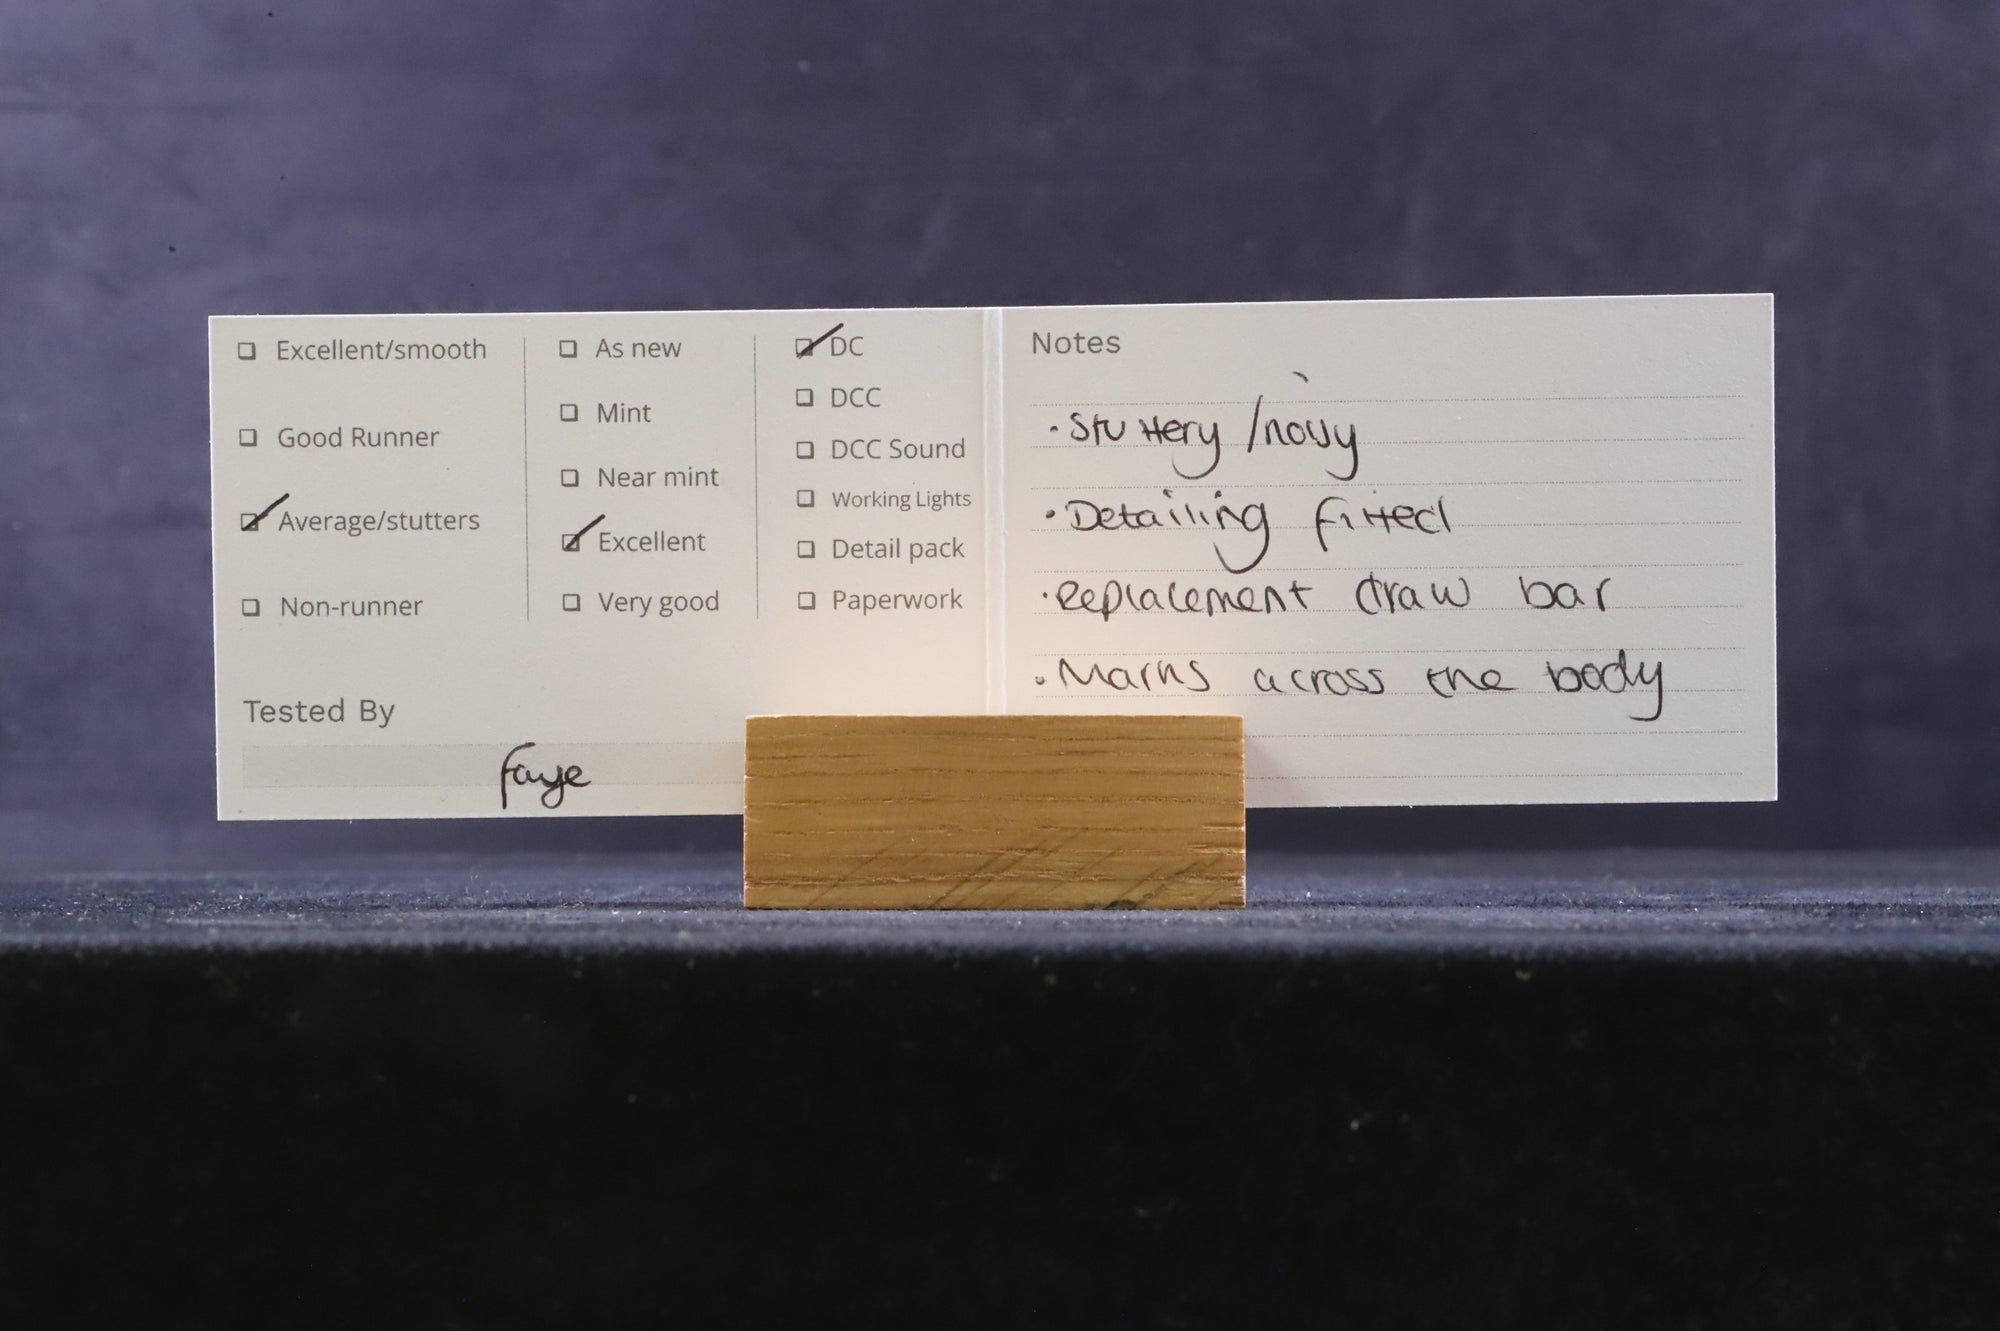 ☐ Excellent/smooth
☐ Good Runner
☑ Average/stutters
☐ Non-runner
☐ As new
☐ Mint
☐ Near mint
☑ Excellent
☐ Very good
☑ DC
☐ DCC
☐ DCC Sound
☐ Working Lights
☐ Detail pack
☐ Paperwork
Tested By
Faye
Notes
• Stuttery / noisy
• Detailing fitted
• Replacement draw bar
• Marks across the body